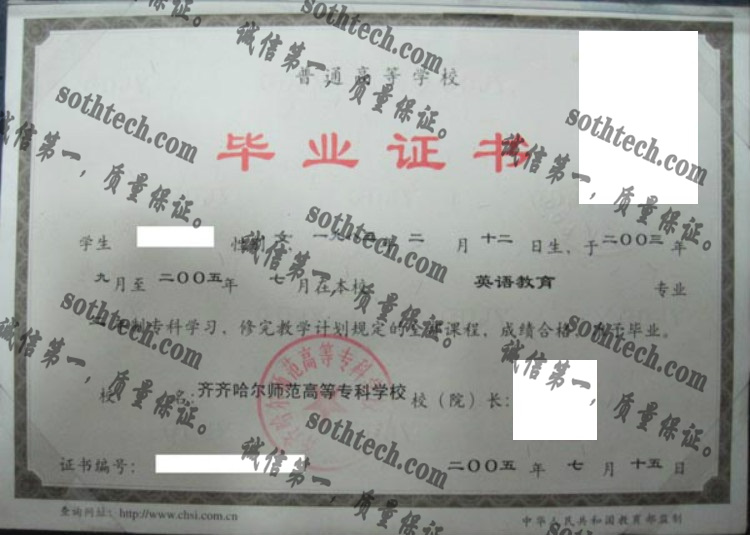 普通高等学校
毕业证书
学生 性别 女 一九 年 二 月 十二 日生，于二〇〇三年
九月至 二〇〇五年 七月在本校 英语教育 专业
制专科学习，修完教学计划规定的全部课程，成绩合格，准予毕业。
校 名：齐齐哈尔师范高等专科学校 校（院）长：
证书编号： 二〇〇五 年 七 月 十五 日
查询网址：http://www.chsi.com.cn 中华人民共和国教育部监制
齐齐哈尔师范高等专科学校
sothtech.com
诚信第一，质量保证。
sothtech.com
诚信第一，质量保证。
sothtech.com
诚信第一，质量保证。
sothtech.com
诚信第一，质量保证。
sothtech.com
诚信第一，质量保证。
sothtech.com
诚信第一，质量保证。
sothtech.com
诚信第一，质量保证。
sothtech.com
诚信第一，质量保证。